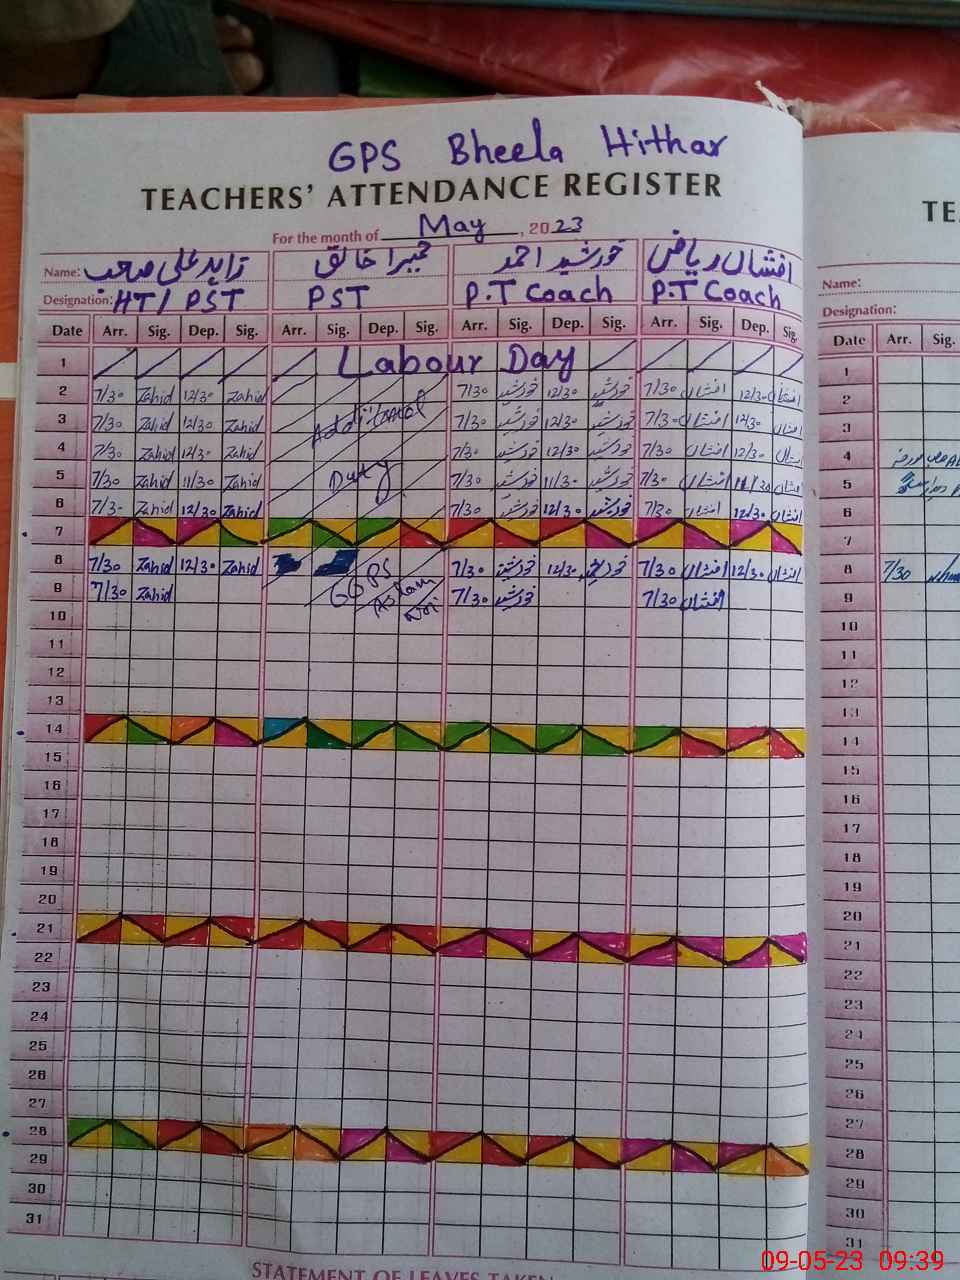 GPS Bheela Hithar
TEACHERS' ATTENDANCE REGISTER
For the month of May, 2023
Name: زاہد علی صاحب حمیرا خالق خورشید احمد افشاں ریاض
Designation: HT/PST PST P.T Coach P.T Coach
Date Arr. Sig. Dep. Sig. Arr. Sig. Dep. Sig. Arr. Sig. Dep. Sig. Arr. Sig. Dep. Sig.
1 Labour Day
2 7/30 Zahid 12/30 Zahid 7/30 خورشید 12/30 خورشید 7/30 افشاں 12/30 افشاں
3 7/30 Zahid 12/30 Zahid Additional 7/30 خورشید 12/30 خورشید 7/30 افشاں 12/30 افشاں
4 7/30 Zahid 12/30 Zahid 7/30 خورشید 12/30 خورشید 7/30 افشاں 12/30 افشاں
5 7/30 Zahid 11/30 Zahid Duty 7/30 خورشید 11/30 خورشید 7/30 افشاں 11/30 افشاں
6 7/30 Zahid 12/30 Zahid 7/30 خورشید 12/30 خورشید 7/30 افشاں 12/30 افشاں
7
8 7/30 Zahid 12/30 Zahid GGPS 7/30 خورشید 12/30 خورشید 7/30 افشاں 12/30 افشاں
9 7/30 Zahid Aslam 7/30 خورشید 7/30 افشاں
10
11
12
13
14
15
16
17
18
19
20
21
22
23
24
25
26
27
28
29
30
31
STATEMENT OF LEAVES TAKEN
TE
Name:
Designation:
Date Arr. Sig.
1
2
3
4
5
6
7
8 7/30
9
10
11
12
13
14
15
16
17
18
19
20
21
22
23
24
25
26
27
28
29
30
31
09-05-23 09:39